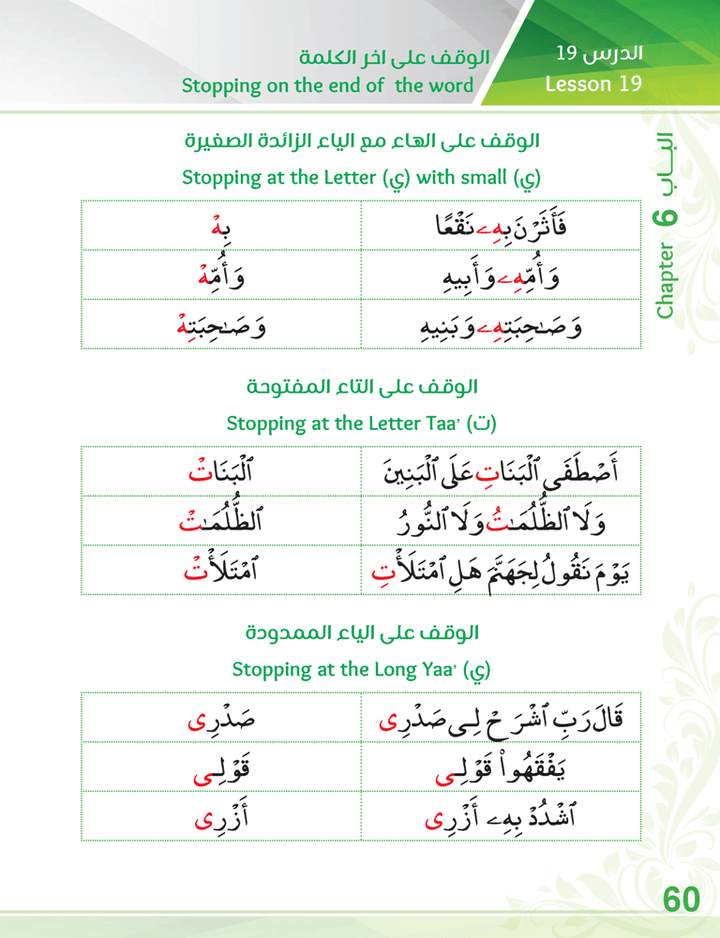 الدرس 19
Lesson 19
الوقف على اخر الكلمة
Stopping on the end of the word
الباب
Chapter 6
الوقف على الهاء مع الياء الزائدة الصغيرة
Stopping at the Letter (ي) with small (ي)
فَأَثَرْنَ بِهِۦ نَقْعًا بِهْ
وَأُمِّهِۦ وَأَبِيهِ وَأُمِّهْ
وَصَـٰحِبَتِهِۦ وَبَنِيهِ وَصَـٰحِبَتِهْ
الوقف على التاء المفتوحة
Stopping at the Letter Taa' (ت)
أَصْطَفَى ٱلْبَنَاتِ عَلَى ٱلْبَنِينَ ٱلْبَنَاتْ
وَلَا ٱلظُّلُمَـٰتُ وَلَا ٱلنُّورُ ٱلظُّلُمَـٰتْ
يَوْمَ نَقُولُ لِجَهَنَّمَ هَلِ ٱمْتَلَأْتِ ٱمْتَلَأْتْ
الوقف على الياء الممدودة
Stopping at the Long Yaa' (ي)
قَالَ رَبِّ ٱشْرَحْ لِى صَدْرِى صَدْرِى
يَفْقَهُوا۟ قَوْلِى قَوْلِى
ٱشْدُدْ بِهِۦ أَزْرِى أَزْرِى
60